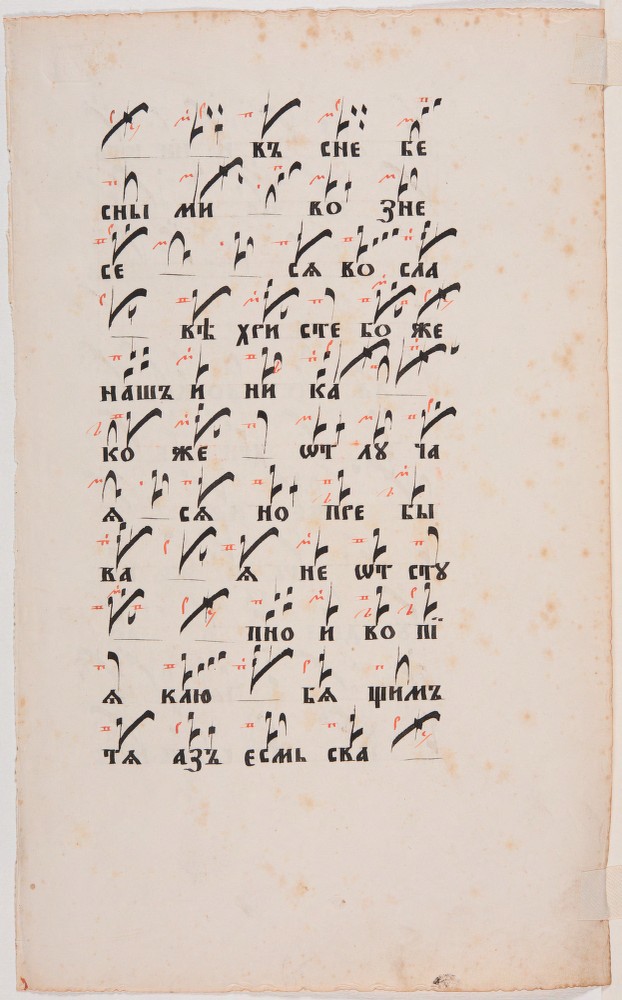 въ сне бе
сны ми во зне
се ся во сла
вѣ хри сте бо же
нашъ и ни ка
ко же ѿт лꙋ ча
ѧ сѧ но пре бы
ва ѧ не ѿт стꙋ
пно и во пї
ѧ клю бѧ щимъ
тѧ азъ есмь ска